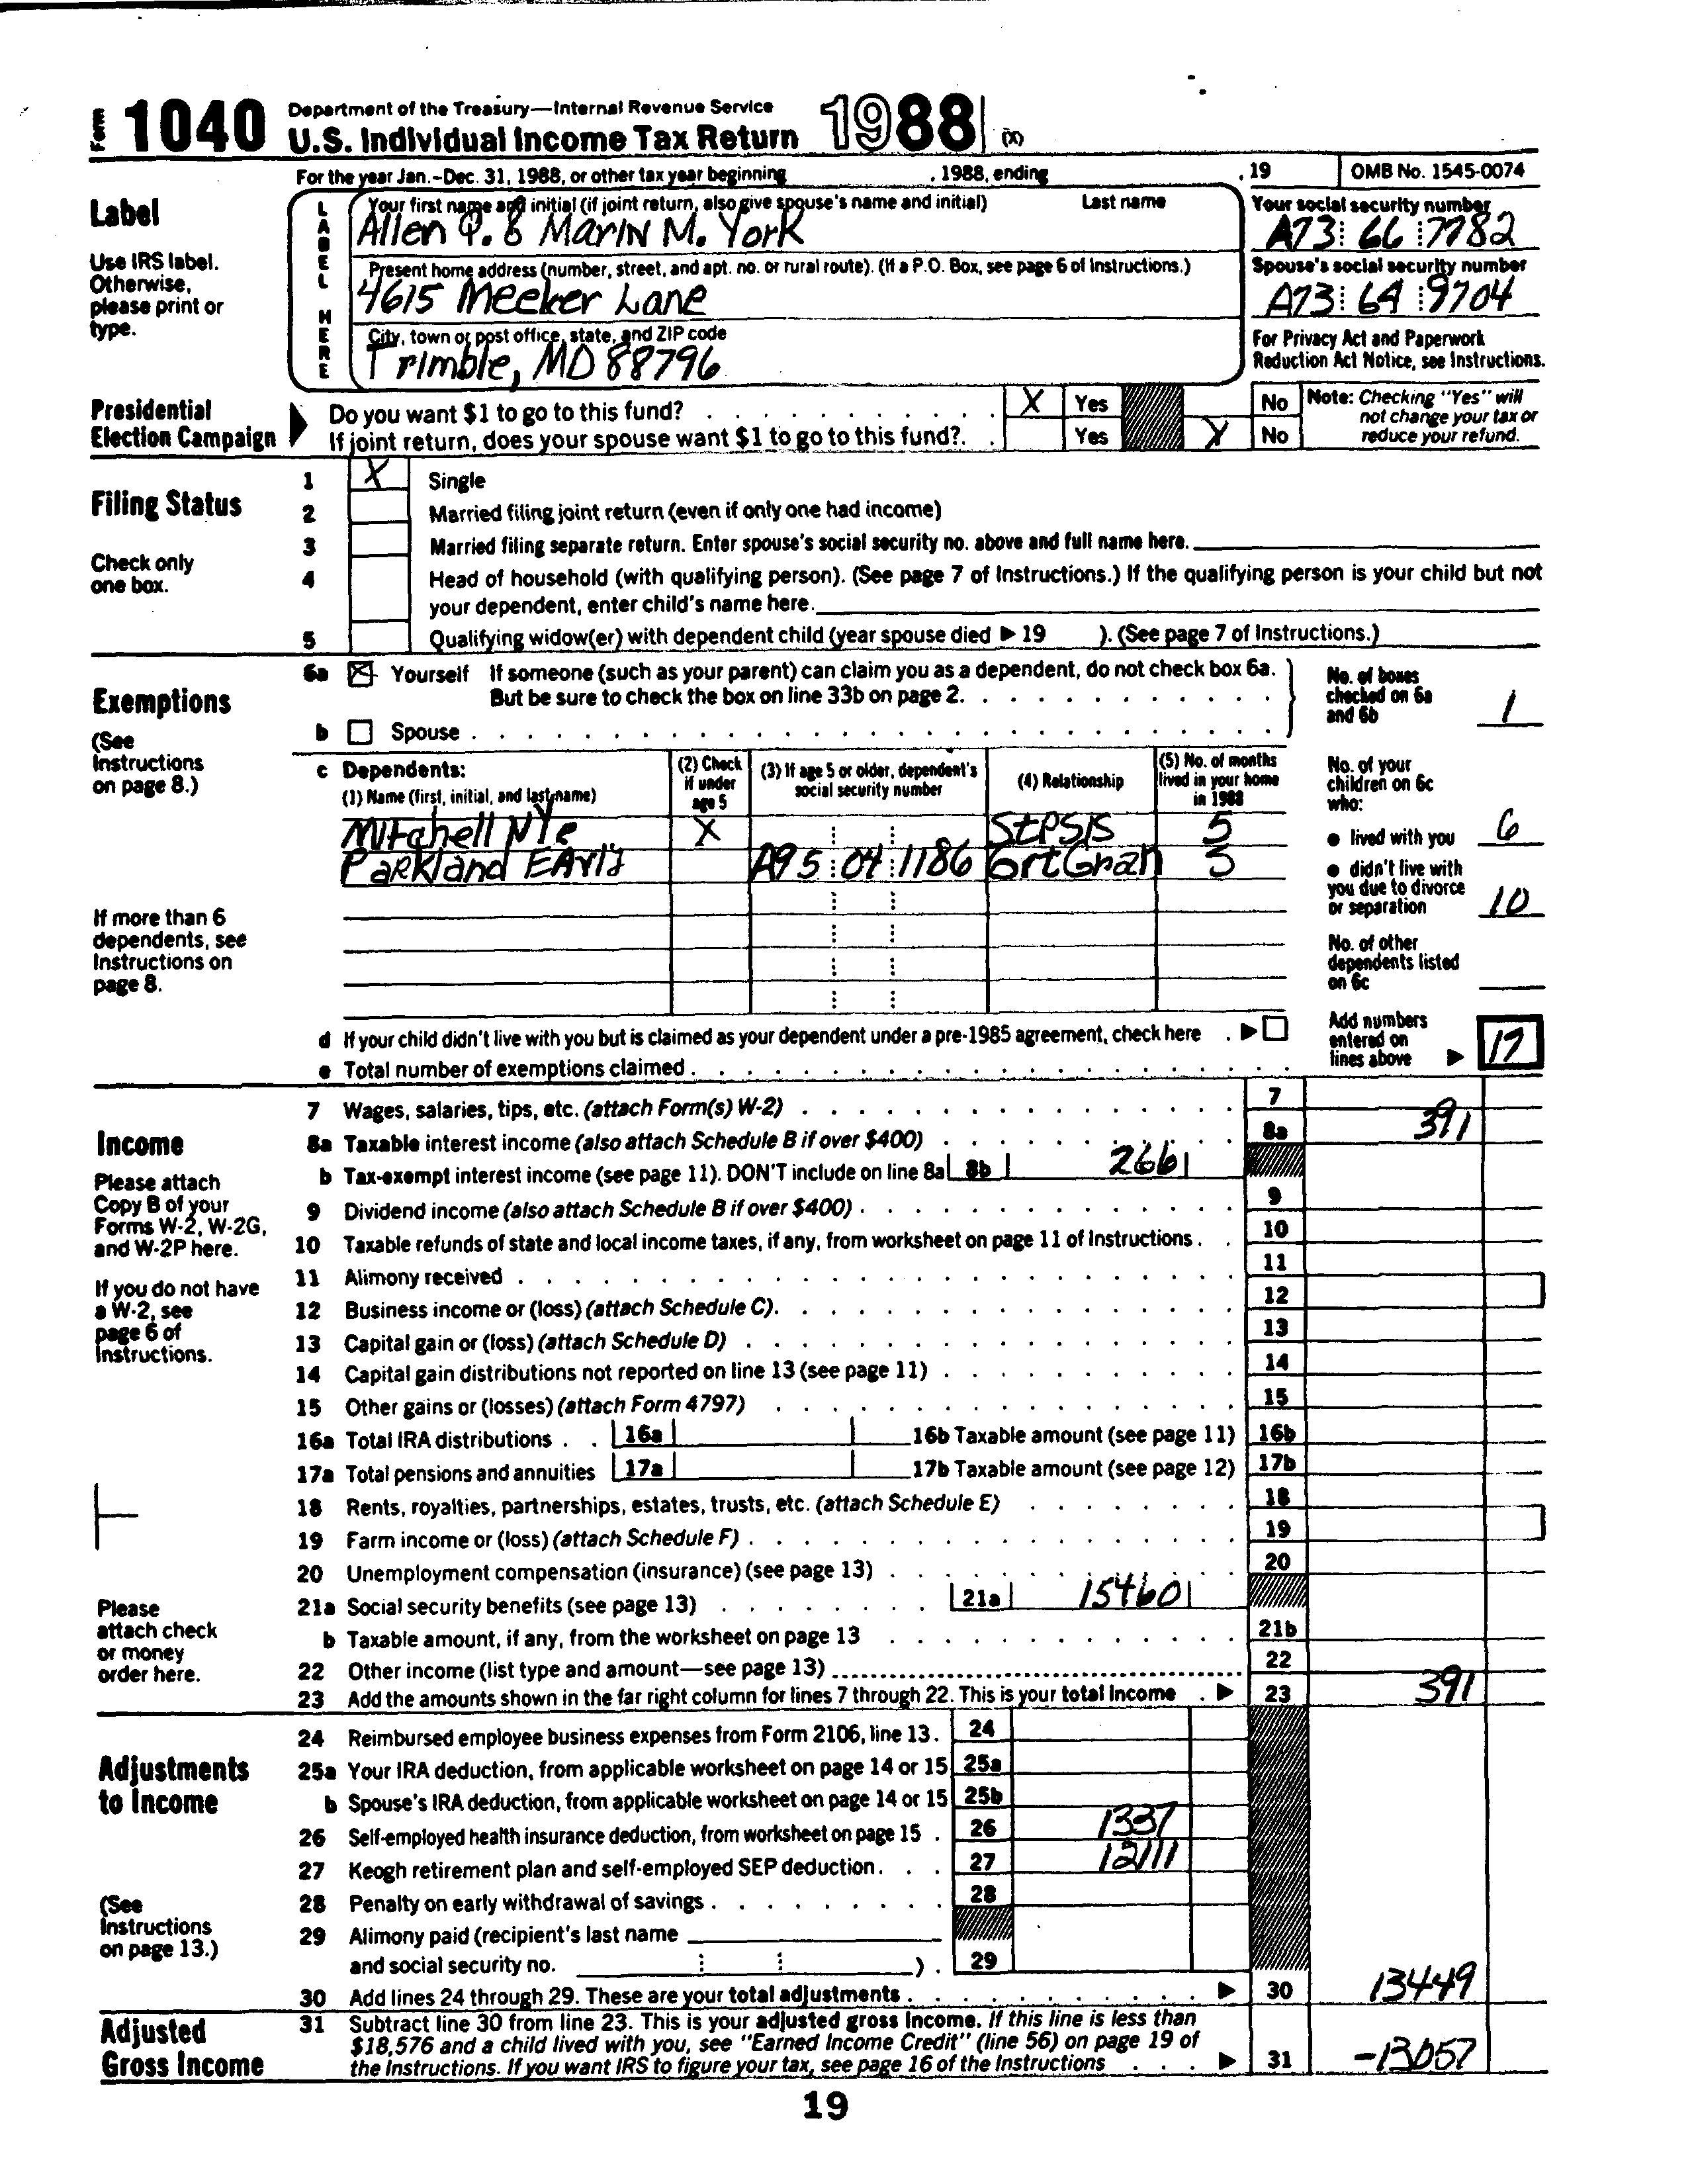 Form 1040 Department of the Treasury—Internal Revenue Service
U.S. Individual Income Tax Return 1988 (X)
For the year Jan.-Dec. 31, 1988, or other tax year beginning , 1988, ending , 19 OMB No. 1545-0074
Label
Use IRS label.
Otherwise,
please print or
type.
LABEL HERE
Your first name and initial (if joint return, also give spouse's name and initial) Last name
Allen Q. & Marin M. York
Your social security number
A73 66 7782
Present home address (number, street, and apt. no. or rural route). (If a P.O. Box, see page 6 of Instructions.)
4615 Meeker Lane
Spouse's social security number
A73 64 9704
City, town or post office, state, and ZIP code
Trimble, MD 88796
For Privacy Act and Paperwork
Reduction Act Notice, see Instructions.
Presidential
Election Campaign
Do you want $1 to go to this fund? X Yes No
If joint return, does your spouse want $1 to go to this fund? Yes X No
Note: Checking "Yes" will
not change your tax or
reduce your refund.
Filing Status
Check only
one box.
1 X Single
2 Married filing joint return (even if only one had income)
3 Married filing separate return. Enter spouse's social security no. above and full name here.
4 Head of household (with qualifying person). (See page 7 of Instructions.) If the qualifying person is your child but not
your dependent, enter child's name here.
5 Qualifying widow(er) with dependent child (year spouse died ▶ 19 ). (See page 7 of Instructions.)
Exemptions
(See
Instructions
on page 8.)
6a X Yourself If someone (such as your parent) can claim you as a dependent, do not check box 6a.
But be sure to check the box on line 33b on page 2.
b Spouse
No. of boxes
checked on 6a
and 6b 1
c Dependents:
(1) Name (first, initial, and last name)
(2) Check
if under
age 5
(3) If age 5 or older, dependent's
social security number
(4) Relationship
(5) No. of months
lived in your home
in 1988
Mitchell Nye X StPSIS 5
Parkland Early A95 04 1186 GrtGran 5
If more than 6
dependents, see
Instructions on
page 8.
No. of your
children on 6c
who:
● lived with you 6
● didn't live with
you due to divorce
or separation 10
No. of other
dependents listed
on 6c
d If your child didn't live with you but is claimed as your dependent under a pre-1985 agreement, check here ▶
e Total number of exemptions claimed
Add numbers
entered on
lines above ▶ 17
Income
Please attach
Copy B of your
Forms W-2, W-2G,
and W-2P here.
If you do not have
a W-2, see
page 6 of
Instructions.
Please
attach check
or money
order here.
7 Wages, salaries, tips, etc. (attach Form(s) W-2) 7
8a Taxable interest income (also attach Schedule B if over $400) 8a 391
b Tax-exempt interest income (see page 11). DON'T include on line 8a 8b 266
9 Dividend income (also attach Schedule B if over $400) 9
10 Taxable refunds of state and local income taxes, if any, from worksheet on page 11 of Instructions 10
11 Alimony received 11
12 Business income or (loss) (attach Schedule C) 12
13 Capital gain or (loss) (attach Schedule D) 13
14 Capital gain distributions not reported on line 13 (see page 11) 14
15 Other gains or (losses) (attach Form 4797) 15
16a Total IRA distributions 16a 16b Taxable amount (see page 11) 16b
17a Total pensions and annuities 17a 17b Taxable amount (see page 12) 17b
18 Rents, royalties, partnerships, estates, trusts, etc. (attach Schedule E) 18
19 Farm income or (loss) (attach Schedule F) 19
20 Unemployment compensation (insurance) (see page 13) 20
21a Social security benefits (see page 13) 21a 15460
b Taxable amount, if any, from the worksheet on page 13 21b
22 Other income (list type and amount—see page 13) 22
23 Add the amounts shown in the far right column for lines 7 through 22. This is your total income ▶ 23 391
Adjustments
to Income
(See
Instructions
on page 13.)
24 Reimbursed employee business expenses from Form 2106, line 13 24
25a Your IRA deduction, from applicable worksheet on page 14 or 15 25a
b Spouse's IRA deduction, from applicable worksheet on page 14 or 15 25b
26 Self-employed health insurance deduction, from worksheet on page 15 26 1337
27 Keogh retirement plan and self-employed SEP deduction 27 12111
28 Penalty on early withdrawal of savings 28
29 Alimony paid (recipient's last name
and social security no. ) 29
30 Add lines 24 through 29. These are your total adjustments ▶ 30 13449
Adjusted
Gross Income
31 Subtract line 30 from line 23. This is your adjusted gross income. If this line is less than
$18,576 and a child lived with you, see "Earned Income Credit" (line 56) on page 19 of
the Instructions. If you want IRS to figure your tax, see page 16 of the Instructions ▶ 31 -13057
19